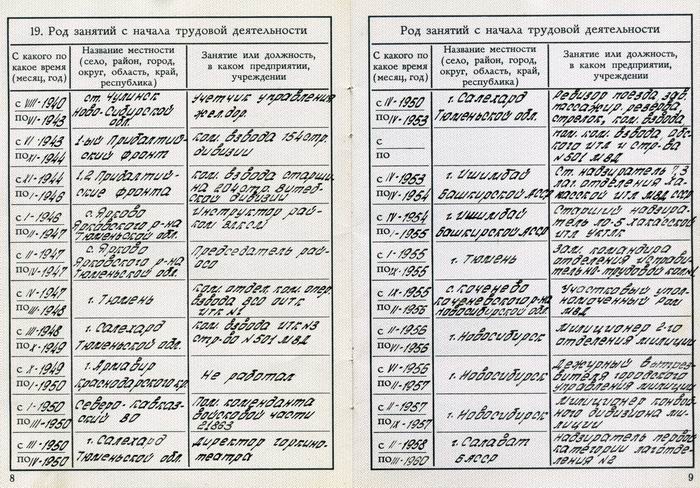 19. Род занятий с начала трудовой деятельности
С какого по
какое время
(месяц, год)
Название местности
(село, район, город,
округ, область, край,
республика)
Занятие или должность,
в каком предприятии,
учреждении
с VIII-1940
по VI-1943
ст. Чулинск
Ново-Сибирской
обл
Учетчик управления
жел.дор.
с VI-1943
по XI-1944
1-ый Прибалтий-
ский фронт
Ком. взвода 154 стр.
дивизии
с XI-1944
по I-1946
1,2 Прибалтий-
ские фронта
Ком. взвода старши-
на 204 стр. Витеб-
ской дивизии
с I-1946
по II-1947
с. Ярково
Ярковского р-на
Тюменской обл.
Инструктор рай-
ком ВЛКСМ
с II-1947
по IV-1947
с. Ярково
Ярковского р-на
Тюменской обл
Председатель рай-
осо
с IV-1947
по III-1948
г. Тюмень
Ком. отдел. ком. опер.
взвода ВСО ОИТК
ИТК №1
с III-1948
по X-1949
г. Салехард
Тюменской обл.
Ком. взвода ИТК №3
стр-ва №501 МВД
с X-1949
по I-1950
г. Армавир
Краснодарского кр.
Не работал
с I-1950
по III-1950
Северо-Кавказ-
ский ВО
Пом. коменданта
войсковой части
21863
с III-1950
по IV-1950
г. Салехард
Тюменской обл.
Директор горкино-
театра
8
Род занятий с начала трудовой деятельности
С какого по
какое время
(месяц, год)
Название местности
(село, район, город,
округ, область, край,
республика)
Занятие или должность,
в каком предприятии,
учреждении
с IV-1950
по IV-1953
г. Салехард
Тюменской обл.
Ревизор поезда, зав.
пассажир. резерва
стрелок, ком. взвода
с
по
пом. ком. взвода, Обс-
кого ИТЛ и стр-ва
№501 МВД
с IV-1953
по IV-1954
г. Ишимбай
Башкирской АССР
Ст. надзиратель 1, 3
лаг. отделения Ха-
касской ИТЛ МВД СССР
с IV-1954
по I-1955
г. Ишимбай
Башкирской АССР
Старший надзира-
тель ло-5 Хакасской
ИТЛ
с I-1955
по IX-1955
г. Тюмень
Зам. командира
отделения исправи-
тельно-трудовой кол.
с IX-1955
по II-1956
с. Коченево
Коченевского р-на
Новосибирской обл
Участковый упол-
номоченный РОМ
МВД
с II-1956
по VI-1956
г. Новосибирск
Милиционер 2-го
отделения милиции
с VI-1956
по II-1957
г. Новосибирск
Дежурный вытрез-
вителя городского
управления милиции
с II-1957
по IX-1957
г. Новосибирск
Милиционер конвой-
ного дивизиона ми-
лиции
с II-1958
по III-1960
г. Салават
БАССР
Надзиратель первой
категории лаготде-
ления №2
9